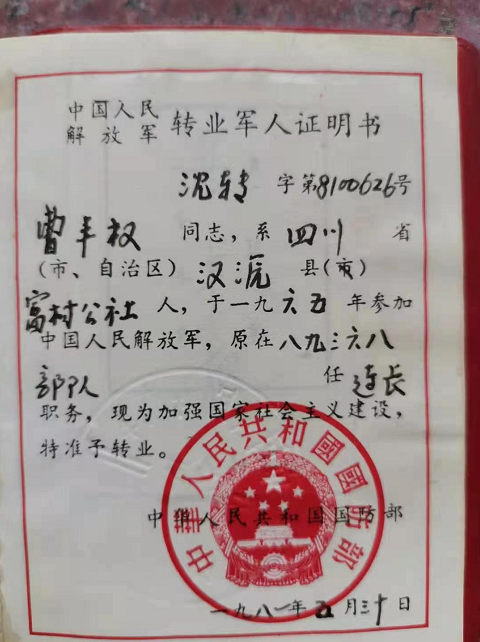 中国人民
解放军 转业军人证明书
沈转 字第8100626号
曹丰权 同志，系 四川 省
（市、自治区）汉源 县（市）
富村公社 人，于一九六五年参加
中国人民解放军，原在八九三六八
部队 任 连长
职务，现为加强国家社会主义建设，
特准予转业。
中华人民共和国国防部
中華人民共和國國防部
一九八一年五月三十日